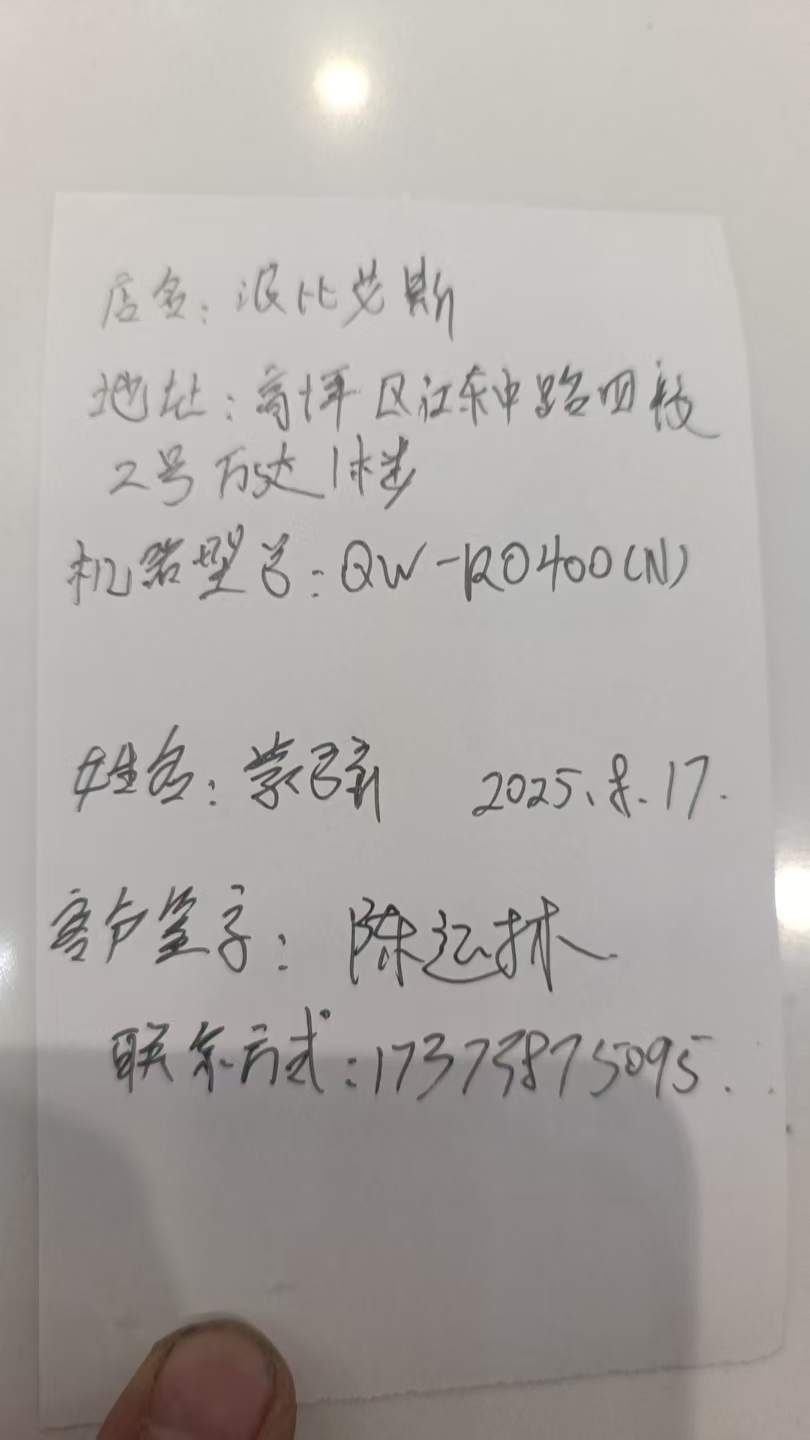 店名：波比艾斯
地址：高坪区江东中路四段
2号万达1楼
机器型号：QW-RO400(N)
姓名：蒙弓 2025.8.17.
客户签字：陈运林
联系方式：17373875095.